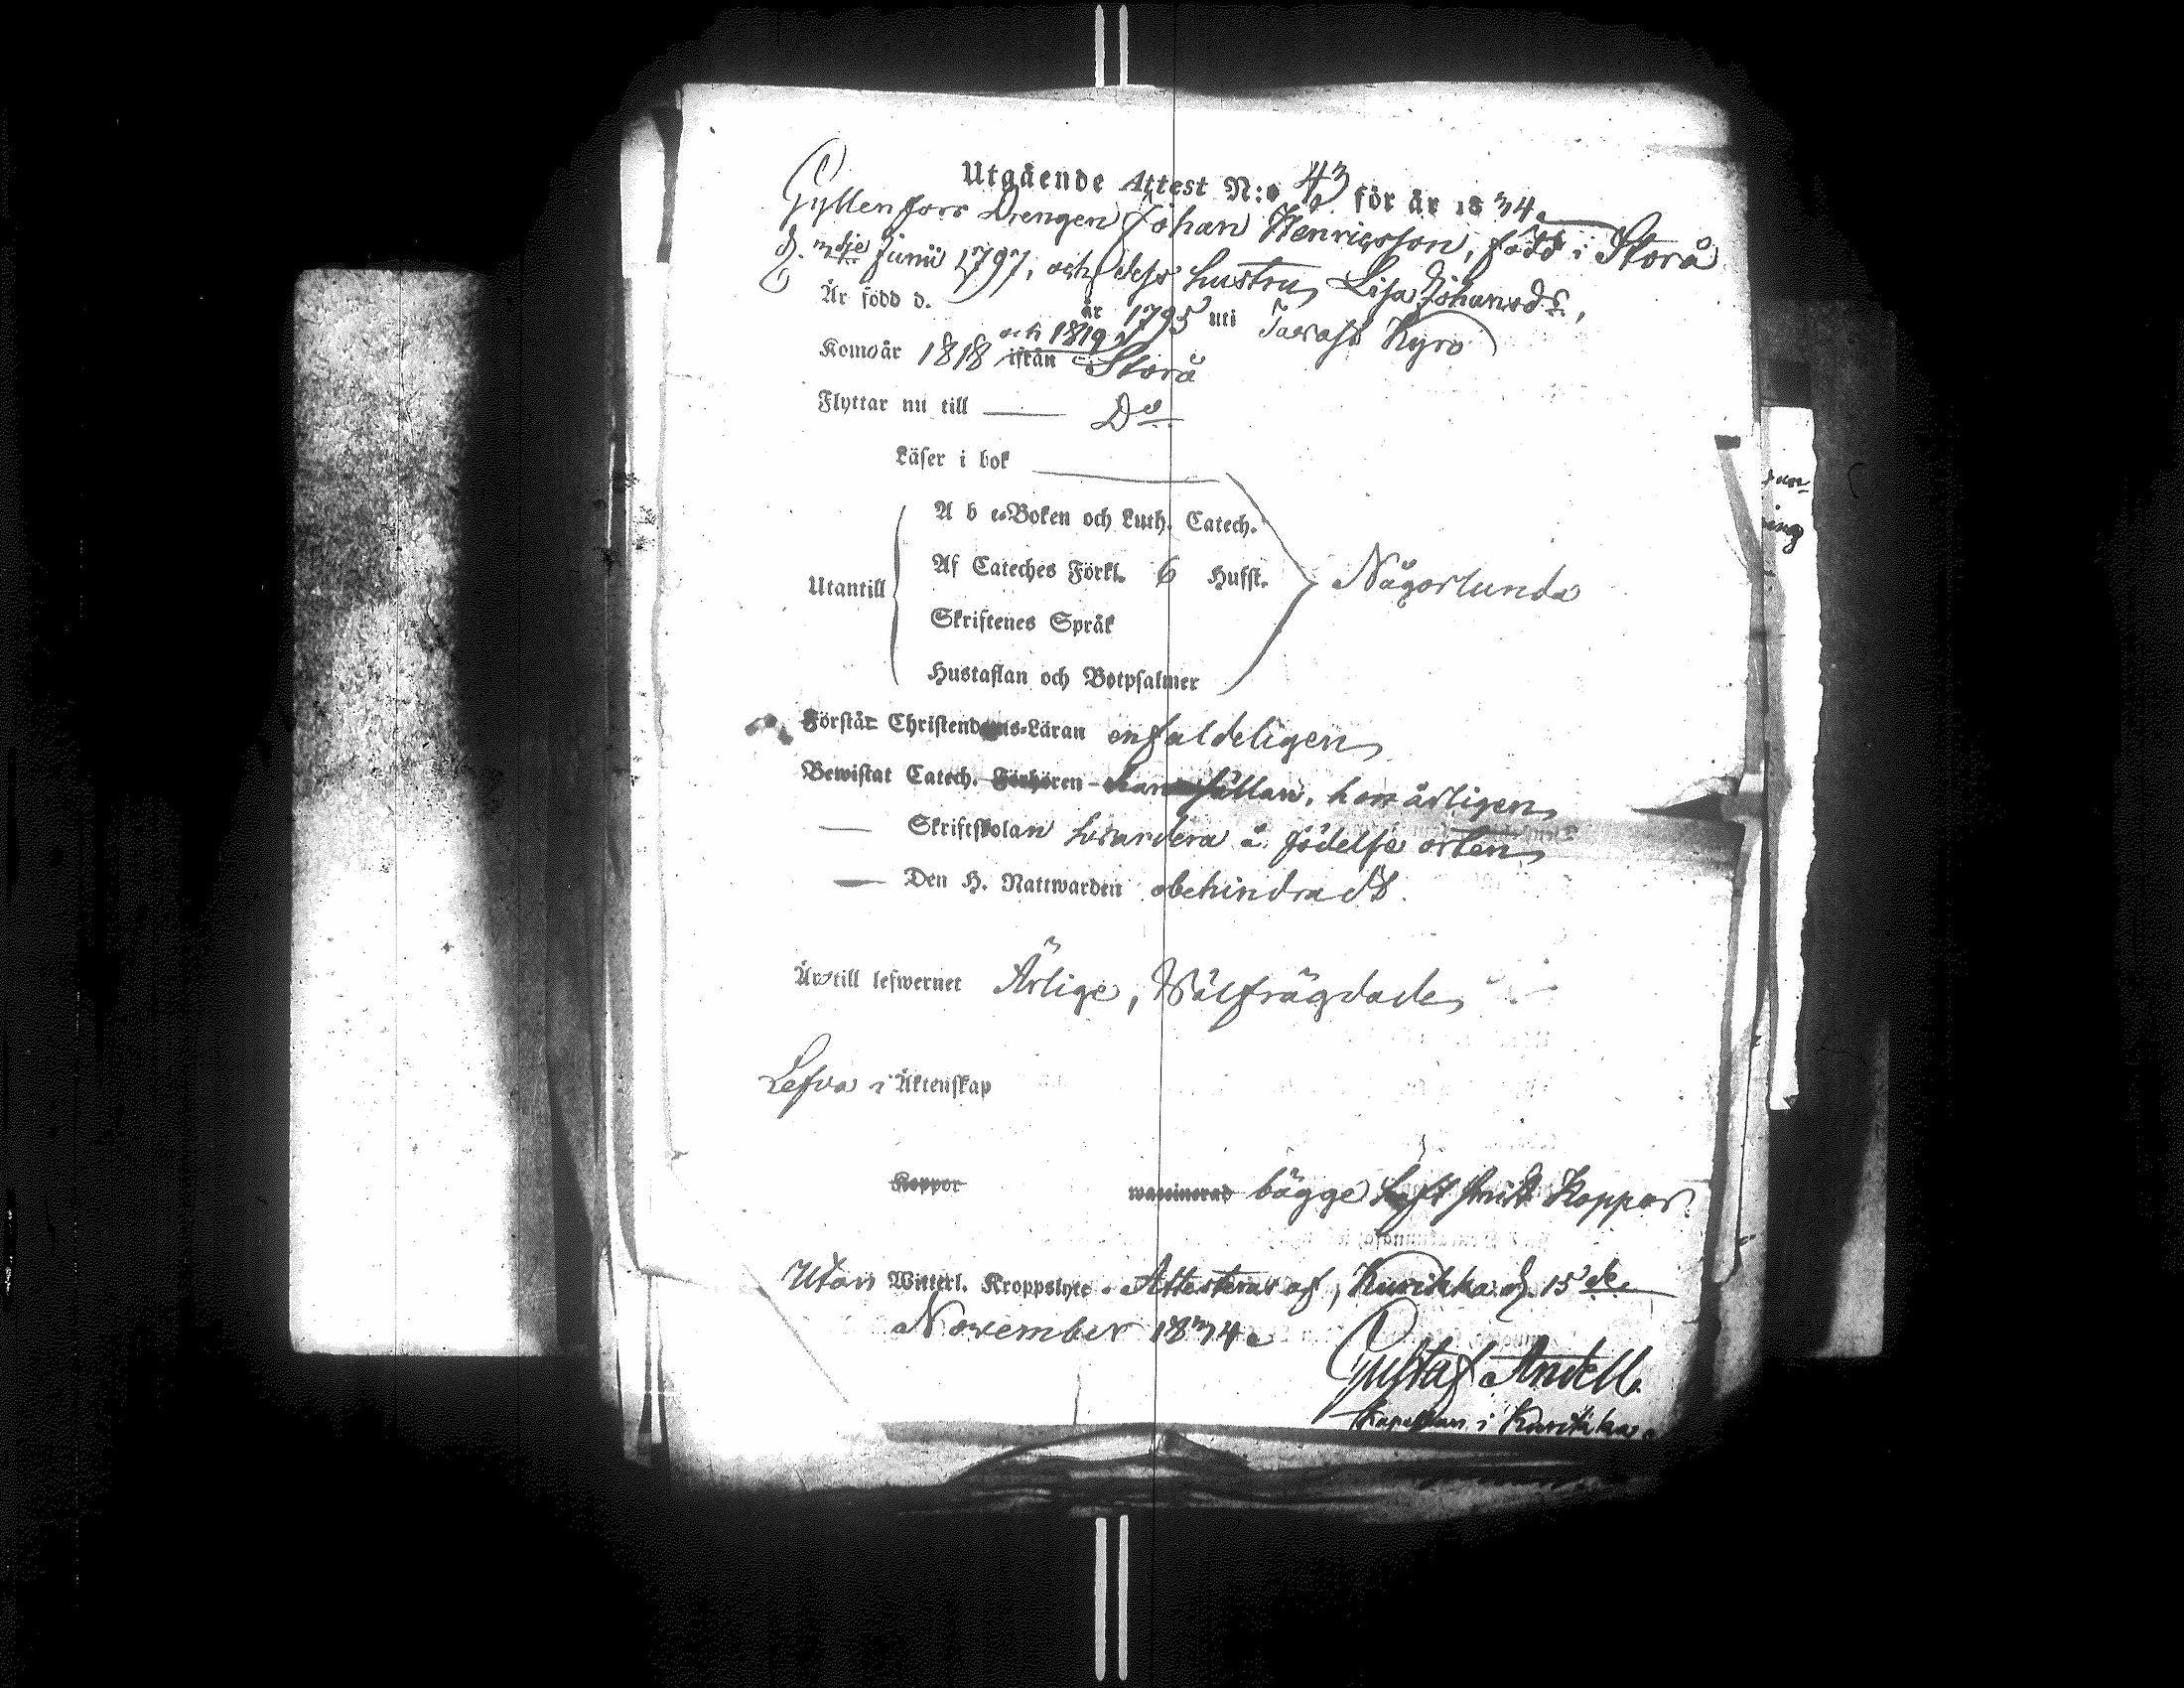 Utgående Attest N:o 43 för år 1834.
Gyllenfors Drengen Johan Henricsson, född i Storå
d. 3dje Junii 1797, och dess hustru Lisa Johansdr,
Är född d. år 1795 uti Tavast Kyro
och 1819
Kom år 1818 ifrån Storå
Flyttar nu till Do
Läser i bok
A b c-Boken och Luth. Catech.
Af Cateches Förkl. 6 Hufst.
Utantill Någorlunda
Skriftenes Språk
Hustaflan och Botpsalmer
Förstår Christendoms-Läran enfaldeligen
Bewistat Catech. Förhören han sällan, hon årligen
Skriftskolan hvardera å födelse orten
Den H. Nattwarden obehindradt.
Är till lefwernet Ärlige, Wälfrägdade
Lefva i Äktenskap
Koppor waccinerad bägge haft Koppor.
Utan Witterl. Kroppslyte. Attesteras af, Kurikka d. 15de
November 1834.
Gustaf Andell.
Kapellan i Kurikka.